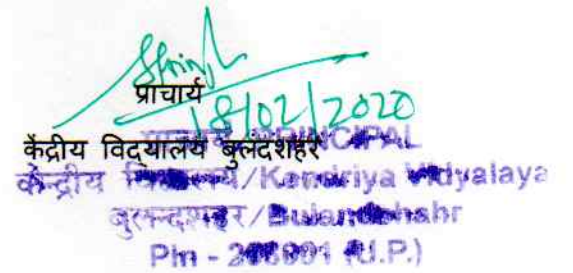 प्राचार्य
18/02/2020
केंद्रीय विद्यालय बुलंदशहर
PRINCIPAL
केन्द्रीय विद्यालय/Kendriya Vidyalaya
बुलन्दशहर/Bulandshahr
Pin - (U.P.)